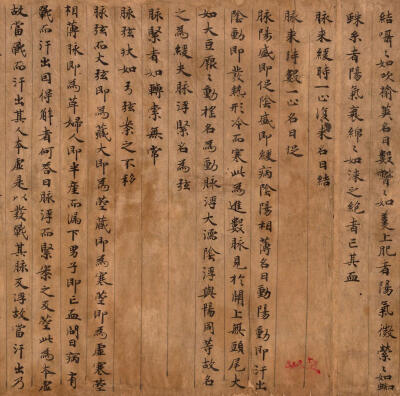 結囁〻如吹榆莢名曰數瞥〻如羹上肥者陽氣微縈〻如蜘
蛛糸者陽氣衰綿〻如漆之絕者亡其血
脉来緩時一心復来名曰結
脉来時數一心名曰促
脉陽盛即促陰盛即緩病陰陽相薄名曰動陽動即汗出
陰動即發熱形冷而寒此為進數脉見於關上無頭尾大
如大豆厥〻動搖名為動脉浮大濡陰浮與陽同等故名
之為緩夫脉浮緊名為弦
脉緊者如轉索無常
脉弦状如弓弦案之不移
脉弦而大弦即為藏大即為芤藏即為寒芤即為虛寒芤
相薄脉即為革婦人即半產而漏下男子即亡血問曰病有
戰而汗出因得解者何荅曰脉浮而緊案之反芤此為本虛
故當戰而汗出其人本虛是以發戰其脉反浮故當汗出乃